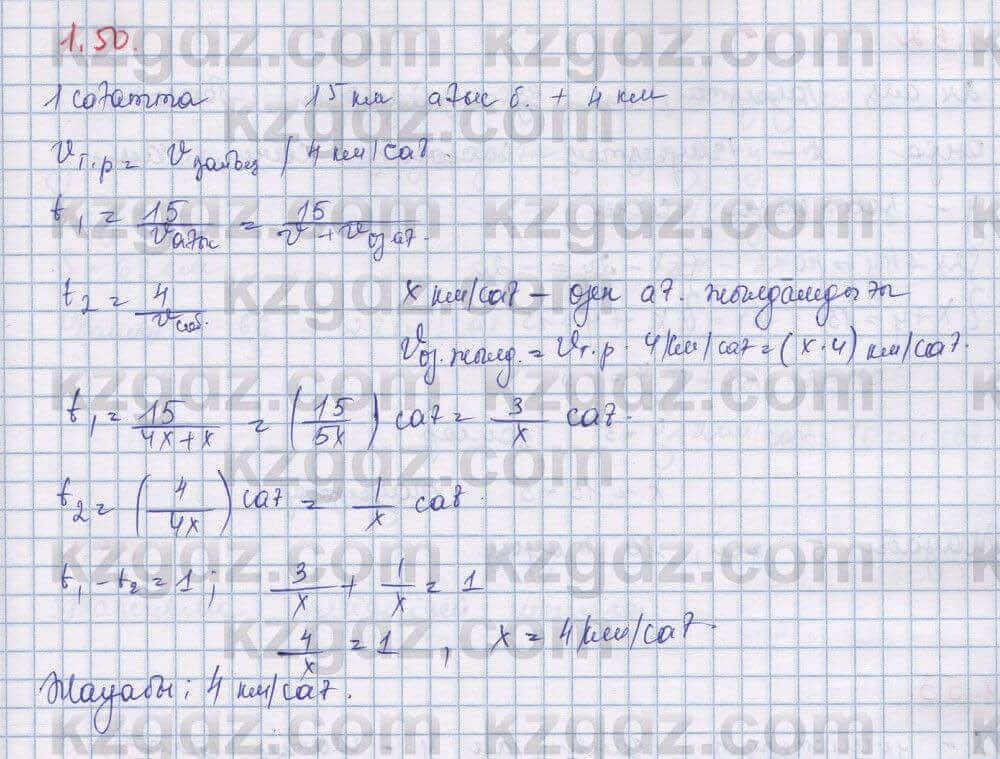 1.50.
1 сағатта 15 км ағыс б. + 4 км
Vт.р = V / 4 км/сағ.
t₁ = 15/Vағыс = 15/(V + Vөз ағ.)
t₂ = 4/V
x км/сағ – өзен ағ. жылдамдығы
Vөз. жылд. = Vт.р · 4 км/сағ = (x·4) км/сағ.
t₁ = 15/(4x+x) = (15/5x) сағ = 3/x сағ.
t₂ = (4/4x) сағ = 1/x сағ.
t₁ - t₂ = 1; 3/x + 1/x = 1
4/x = 1, x = 4 км/сағ.
Жауабы: 4 км/сағ.
kzgdz.com